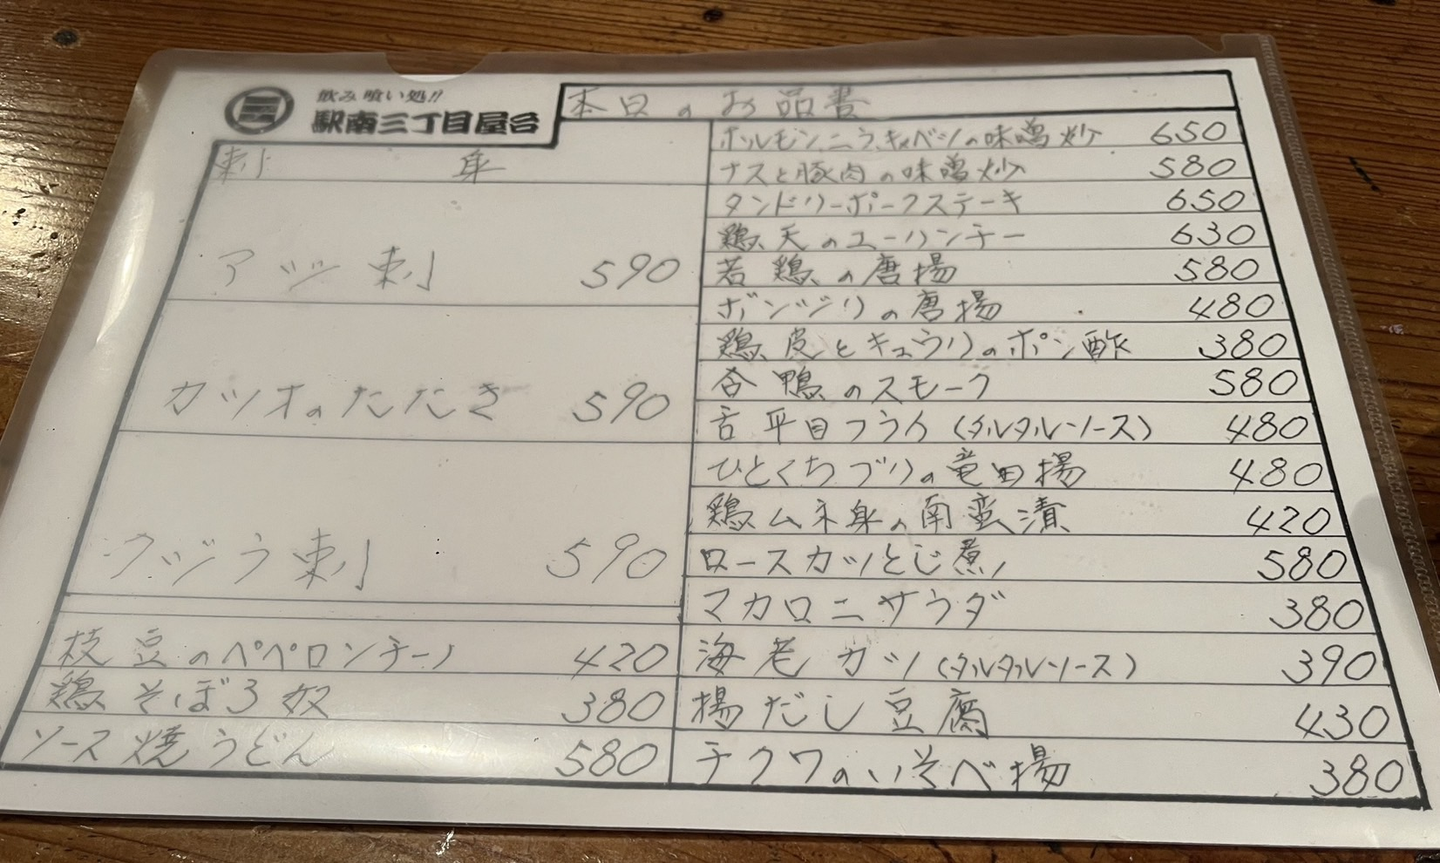 飲み喰い処!!
駅南三丁目屋台
本日のお品書
刺 身
アッツ刺 590
カツオのたたき 590
クジラ刺 590
枝豆のペペロンチーノ 420
鶏そぼろ奴 380
ソース焼うどん 580
ホルモン、ニラ、キャベツの味噌炒 650
ナスと豚肉の味噌炒 580
タンドリーポークステーキ 650
鶏天のユーリンチー 630
若鶏の唐揚 580
ボンジリの唐揚 480
鶏皮とキュウリのポン酢 380
合鴨のスモーク 580
舌平目フライ(タルタルソース) 480
ひとくちブリの竜田揚 480
鶏ムネ身の南蛮漬 420
ロースカツとじ煮 580
マカロニサラダ 380
海老カツ(タルタルソース) 390
揚だし豆腐 430
チクワのいそべ揚 380